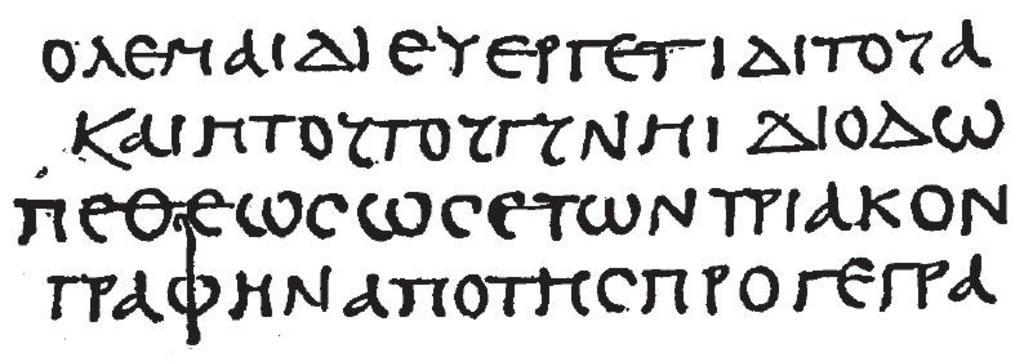 ΟΛΕΜΑΙΔΙ ΕΥΕΡΓΕΤΙΔΙ ΤΟΥ Α
ΚΑΙ Η ΤΟΥΤΟΥ ΓΥΝΗΙ ΔΙΟΔΩ
ΠΕΘΕΩΣ ΩΣ ΕΤΩΝ ΤΡΙΑΚΟΝ
ΓΡΑΦΗΝ ΑΠΟ ΤΗΣ ΠΡΟΓΕΓΡΑ